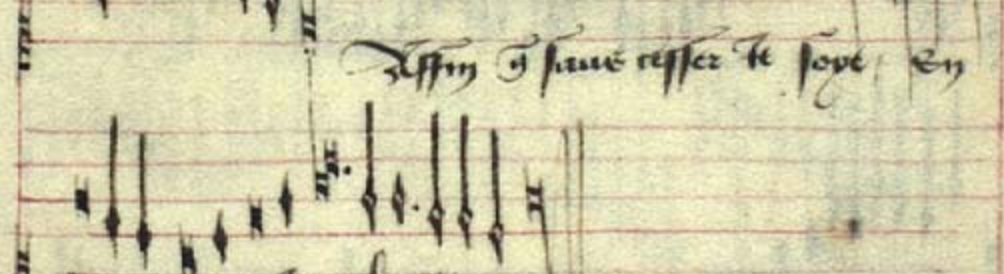 Affin q̃ sans cesser te soye En